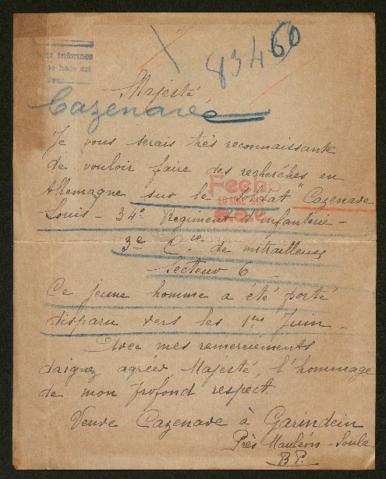 informes
83460
Majesté
Cazenave
Je vous serais très reconnaissante
de vouloir faire des recherches en
Allemagne sur le soldat "Cazenave
Louis - 34e Régiment d'infanterie -
3e Cie de mitrailleuses
- Secteur 6 -
Ce jeune homme a été porté
disparu vers les 1ers Juin -
Avec mes remerciements
daignez agréer Majesté, l'hommage
de mon profond respect
Veuve Cazenave à Garindein
Près Mauléon-Soule
B.P.